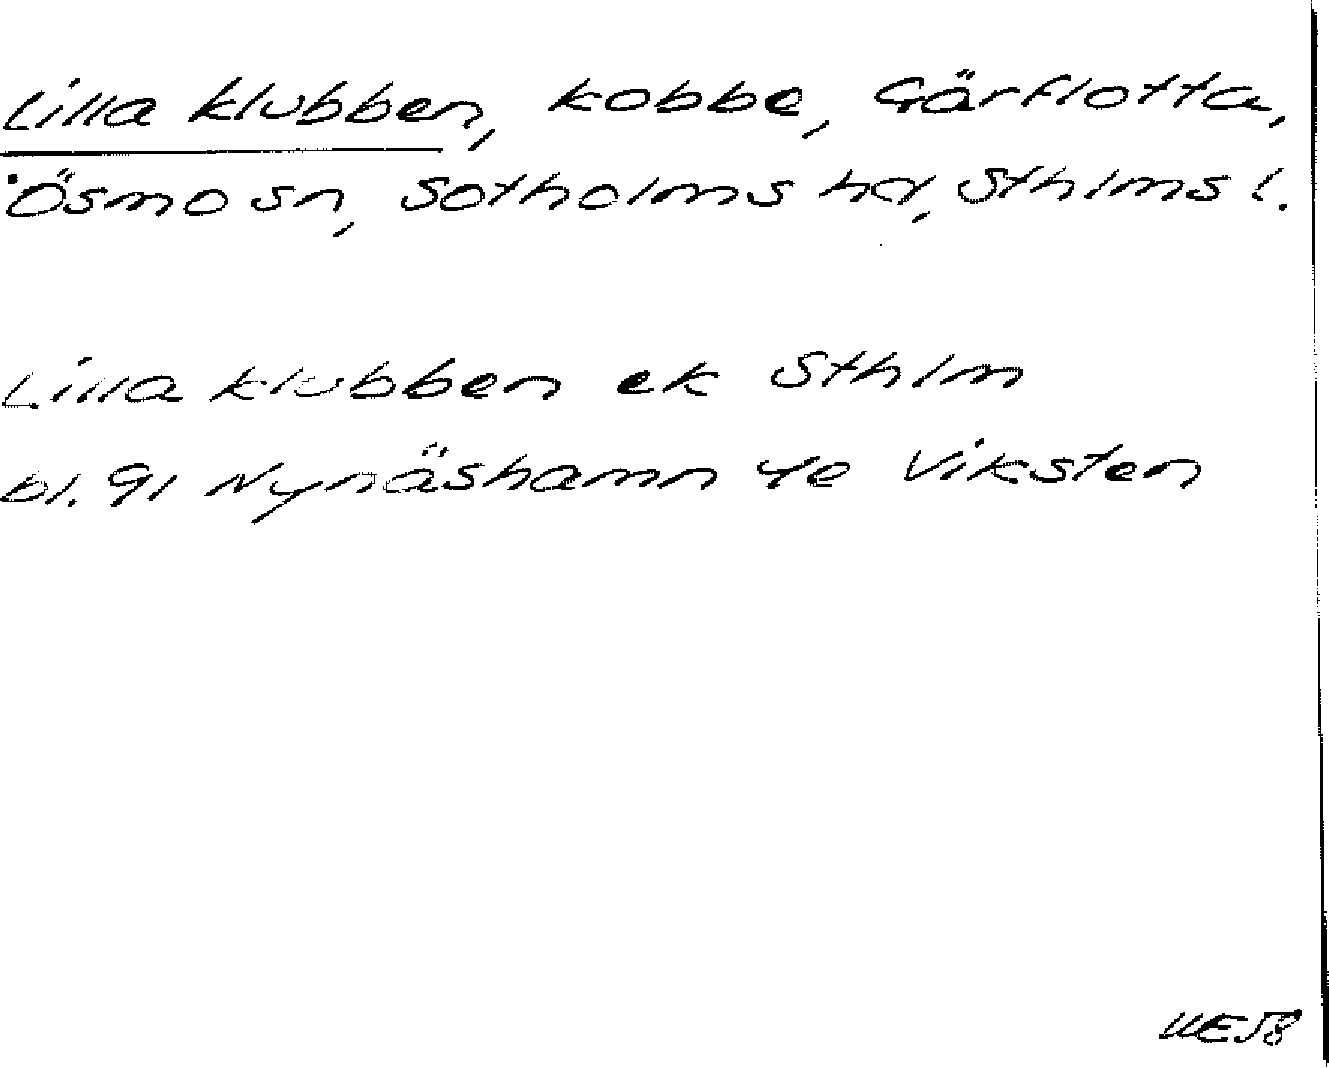 Lilla klubben, kobbe, Gärflotta,
Ösmo sn, Sotholms hd, Sthlms l.
Lilla klubben ek Sthlm
bl. 91 Nynäshamn 4e Viksten
UE58